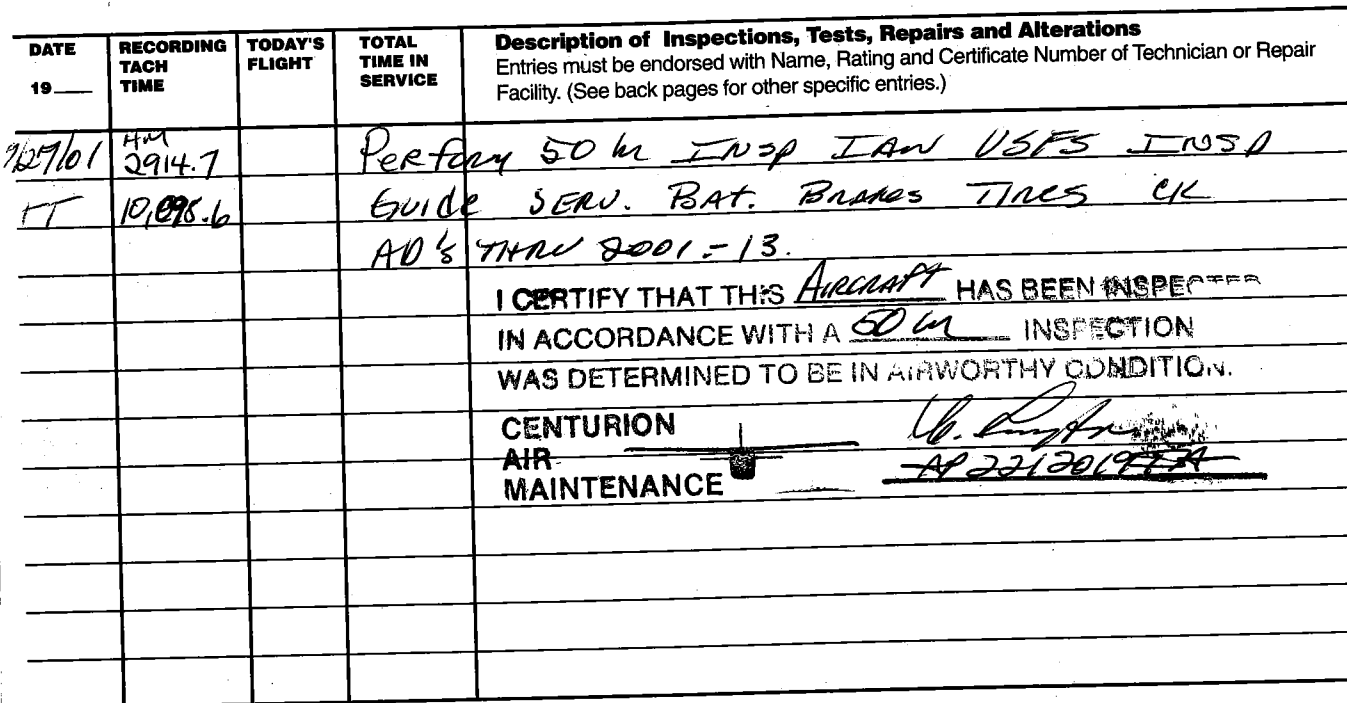 DATE RECORDING TODAY'S TOTAL Description of Inspections, Tests, Repairs and Alterations
TACH FLIGHT TIME IN Entries must be endorsed with Name, Rating and Certificate Number of Technician or Repair
19___ TIME SERVICE Facility. (See back pages for other specific entries.)
HM
7/27/01 2914.7 Perform 50 hr INSP IAW USFS INSP
TT Guide SERV. BAT. Brakes Tires CK
AD's THRU 2001-13.
I CERTIFY THAT THIS AIRCRAFT HAS BEEN INSPECTED
IN ACCORDANCE WITH A 50 hr INSPECTION
WAS DETERMINED TO BE IN AIRWORTHY CONDITION.
CENTURION
AIR
MAINTENANCE